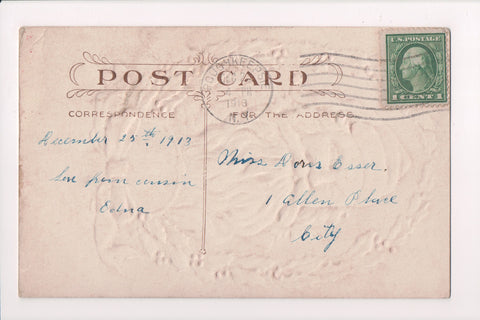 POST CARD
CORRESPONDENCE
FOR THE ADDRESS.
U.S. POSTAGE
1 CENT 1
1913
December 25th 1913
Love from cousin
Edna
Miss Doris Esser.
1 Allen Place
City